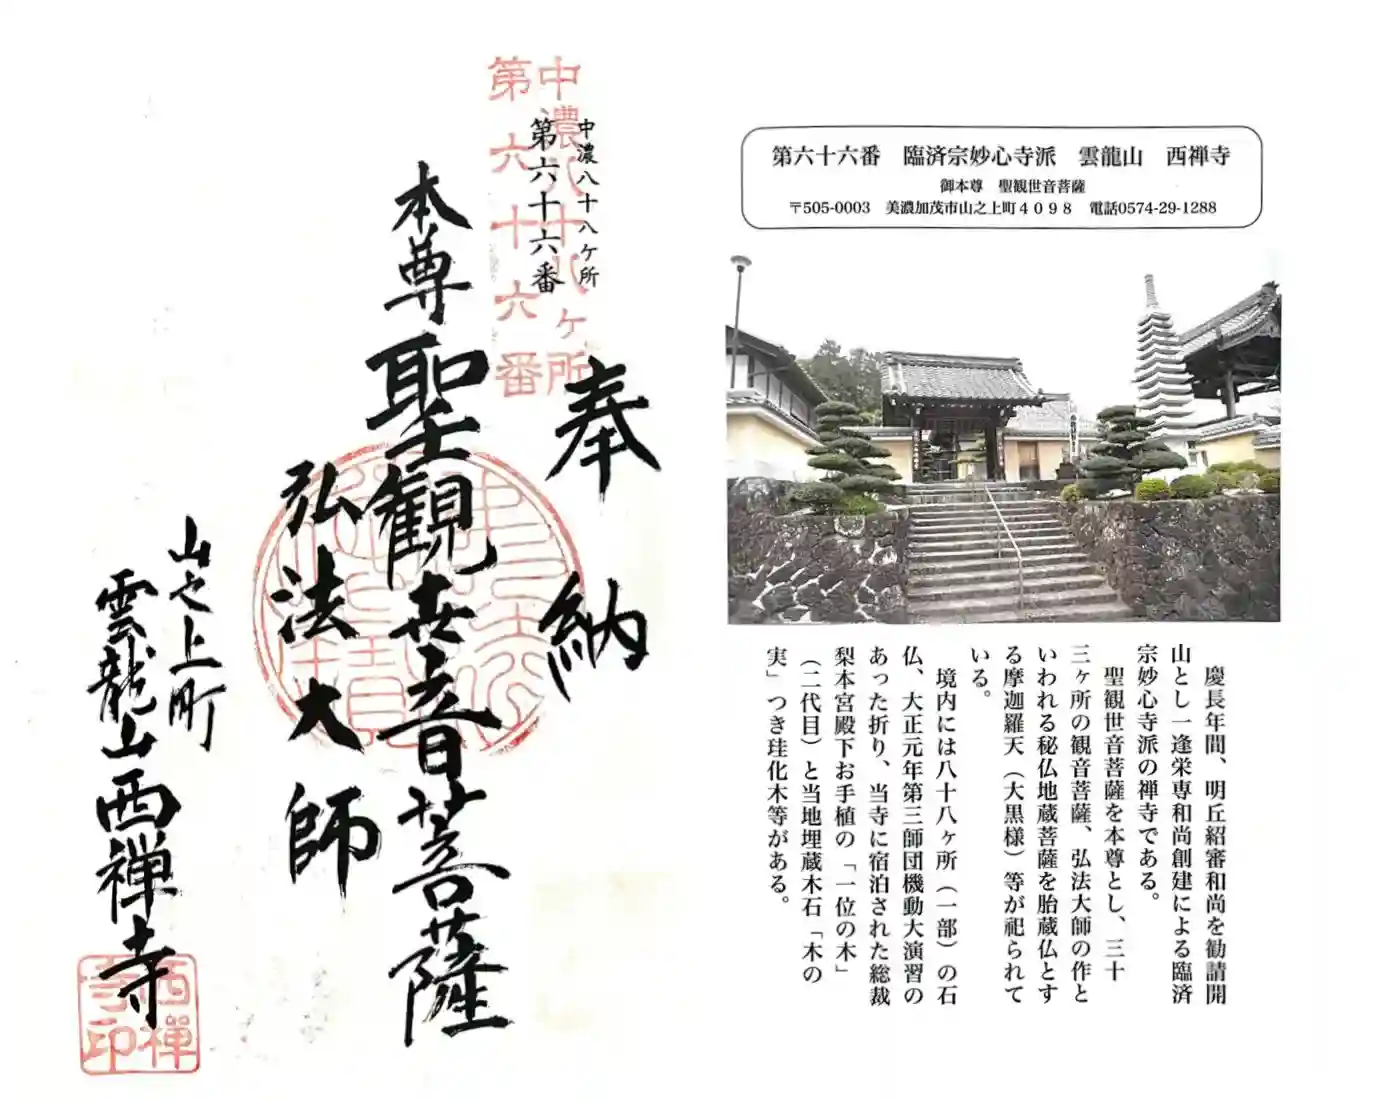 中濃八十八ヶ所
第六十六番
中濃八十八ヶ所
第六十六番
奉納
本尊聖観世音菩薩
弘法大師
山之上町
雲龍山西禅寺
西禅
寺印
第六十六番　臨済宗妙心寺派　雲龍山　西禅寺
御本尊　聖観世音菩薩
〒505-0003　美濃加茂市山之上町４０９８　電話0574-29-1288
慶長年間、明丘紹審和尚を勧請開
山とし一逢栄専和尚創建による臨済
宗妙心寺派の禅寺である。
聖観世音菩薩を本尊とし、三十
三ヶ所の観音菩薩、弘法大師の作と
いわれる秘仏地蔵菩薩を胎蔵仏とす
る摩迦羅天（大黒様）等が祀られて
いる。
境内には八十八ヶ所（一部）の石
仏、大正元年第三師団機動大演習の
あった折り、当寺に宿泊された総裁
梨本宮殿下お手植の「一位の木」
（二代目）と当地埋蔵木石「木の
実」つき珪化木等がある。